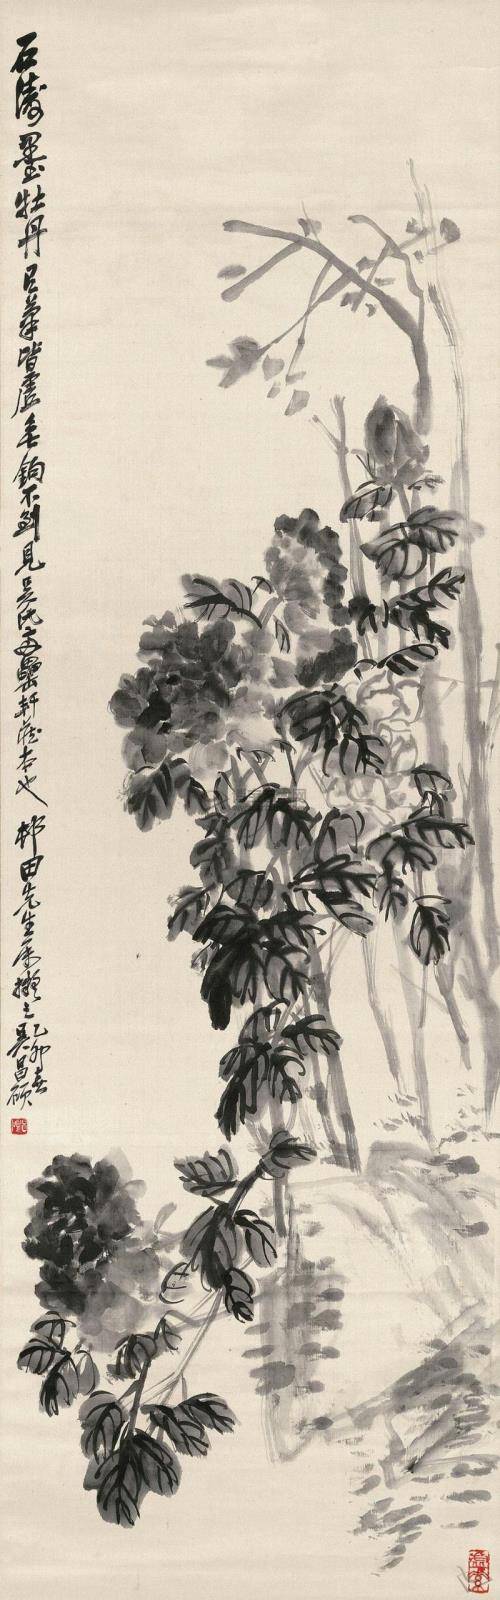 石濤墨牡丹筆皆虛無鉤不到見吳氏兩罍軒藏本也邨田先生屬擬之
乙卯春
吳昌碩